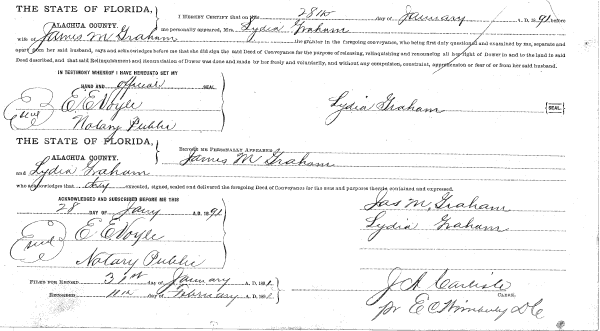 THE STATE OF FLORIDA,
ALACHUA COUNTY.
I HEREBY CERTIFY that on the 28th day of January A. D. 1891, before
me personally appeared, Mrs. Lydia Graham
wife of James M Graham the grantor in the foregoing conveyance, who being first duly questioned and examined by me, separate and
apart from her said husband, says and acknowledges before me that she did sign the said Deed of Conveyance for the purpose of releasing, relinquishing and renouncing all her right of Dower in and to the land in said
Deed described, and that said Relinquishment and Renunciation of Dower was done and made by her freely and voluntarily, and without any compulsion, constraint, apprehension or fear of or from her said husband.
IN TESTIMONY WHEREOF I HAVE HEREUNTO SET MY
HAND AND official SEAL
E. E Voyle
Seal
Notary Public
Lydia Graham [SEAL]
THE STATE OF FLORIDA,
ALACHUA COUNTY.
BEFORE ME PERSONALLY APPEARED James M Graham
and Lydia Graham
who acknowledges that they executed, signed, sealed and delivered the foregoing Deed of Conveyance for the uses and purposes therein contained and expressed.
ACKNOWLEDGED AND SUBSCRIBED BEFORE ME THIS
28 DAY OF Jany A.D. 1891
Jas M. Graham
Lydia Graham
Seal
E E Voyle
Notary Public
FILED FOR RECORD 31st day of January A. D. 1891
RECORDED 11th day of February A. D. 1891
J A Carlisle
CLERK.
pr E C Wimberly D C